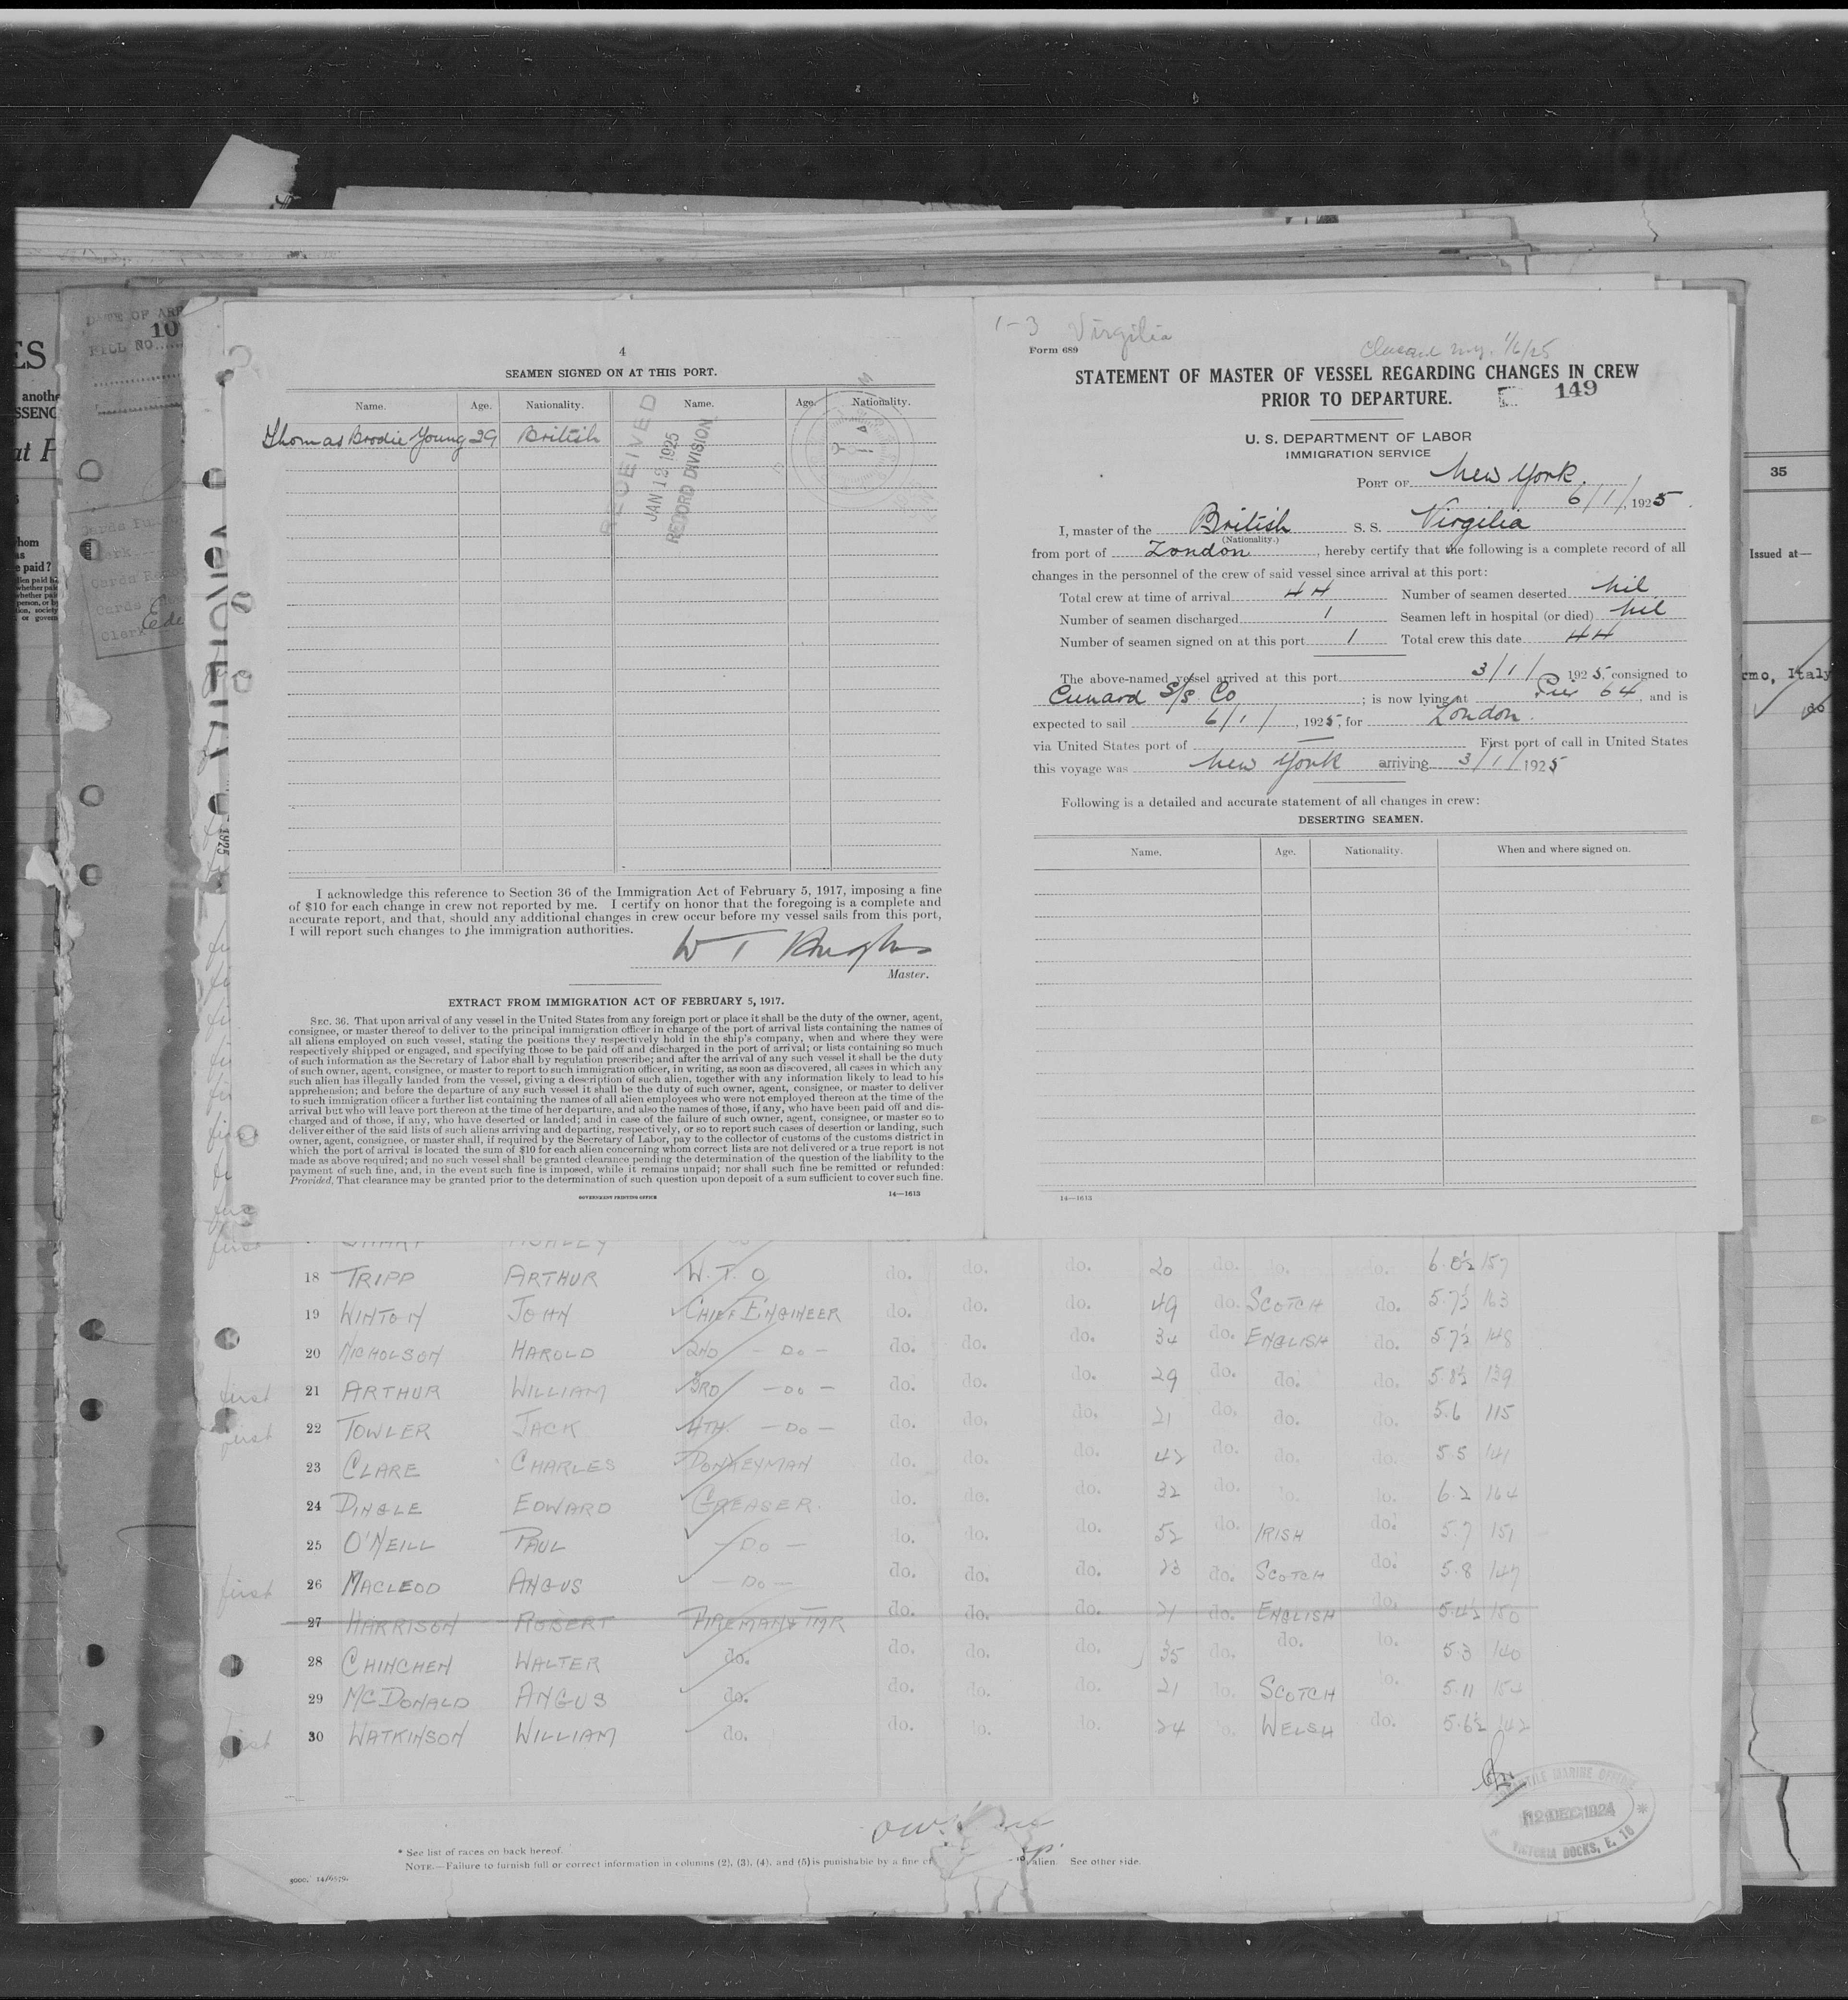 4
SEAMEN SIGNED ON AT THIS PORT.
Name. Age. Nationality. Name. Age. Nationality.
Thomas Brodie Young 29 British
RECEIVED
JAN 12 1925
RECORD DIVISION
I acknowledge this reference to Section 36 of the Immigration Act of February 5, 1917, imposing a fine
of $10 for each change in crew not reported by me. I certify on honor that the foregoing is a complete and
accurate report, and that, should any additional changes in crew occur before my vessel sails from this port,
I will report such changes to the immigration authorities.
W T Hughes
Master.
EXTRACT FROM IMMIGRATION ACT OF FEBRUARY 5, 1917.
SEC. 36. That upon arrival of any vessel in the United States from any foreign port or place it shall be the duty of the owner, agent,
consignee, or master thereof to deliver to the principal immigration officer in charge of the port of arrival lists containing the names of
all aliens employed on such vessel, stating the positions they respectively hold in the ship's company, when and where they were
respectively shipped or engaged, and specifying those to be paid off and discharged in the port of arrival; or lists containing so much
of such information as the Secretary of Labor shall by regulation prescribe; and after the arrival of any such vessel it shall be the duty
of such owner, agent, consignee, or master to report to such immigration officer, in writing, as soon as discovered, all cases in which any
such alien has illegally landed from the vessel, giving a description of such alien, together with any information likely to lead to his
apprehension; and before the departure of any such vessel it shall be the duty of such owner, agent, consignee, or master to deliver
to such immigration officer a further list containing the names of all alien employees who were not employed thereon at the time of the
arrival but who will leave port thereon at the time of her departure, and also the names of those, if any, who have been paid off and dis-
charged and of those, if any, who have deserted or landed; and in case of the failure of such owner, agent, consignee, or master so to
deliver either of the said lists of such aliens arriving and departing, respectively, or so to report such cases of desertion or landing, such
owner, agent, consignee, or master shall, if required by the Secretary of Labor, pay to the collector of customs of the customs district in
which the port of arrival is located the sum of $10 for each alien concerning whom correct lists are not delivered or a true report is not
made as above required; and no such vessel shall be granted clearance pending the determination of the question of the liability to the
payment of such fine, and, in the event such fine is imposed, while it remains unpaid; nor shall such fine be remitted or refunded:
Provided, That clearance may be granted prior to the determination of such question upon deposit of a sum sufficient to cover such fine.
GOVERNMENT PRINTING OFFICE 14—1613
1-3 Virgilia
Form 689
1/6/25
STATEMENT OF MASTER OF VESSEL REGARDING CHANGES IN CREW
PRIOR TO DEPARTURE. E 149
U. S. DEPARTMENT OF LABOR
IMMIGRATION SERVICE
PORT OF New York.
6/1/, 1925.
I, master of the British S. S. Virgilia
(Nationality.)
from port of London, hereby certify that the following is a complete record of all
changes in the personnel of the crew of said vessel since arrival at this port:
Total crew at time of arrival 44 Number of seamen deserted nil
Number of seamen discharged 1 Seamen left in hospital (or died) nil
Number of seamen signed on at this port 1 Total crew this date 44
The above-named vessel arrived at this port 3/1/ 1925, consigned to
Cunard S/S Co; is now lying at Pier 64, and is
expected to sail 6/1/, 1925, for London.
via United States port of — First port of call in United States
this voyage was New York arriving 3/1/1925
Following is a detailed and accurate statement of all changes in crew:
DESERTING SEAMEN.
Name. Age. Nationality. When and where signed on.
14—1613
35
Issued at—
rmo, Italy
18 TRIPP ARTHUR W.T.O. do. do. do. 20 do. do. do. 6.0½ 157
19 WINTON JOHN CHIEF ENGINEER do. do. do. 49 do. SCOTCH do. 5.7½ 163
20 NICHOLSON HAROLD 2ND — DO — do. do. do. 34 do. ENGLISH do. 5 7½ 148
first 21 ARTHUR WILLIAM 3RD — DO — do. do. do. 29 do. do. do. 5.8½ 139
first 22 TOWLER JACK 4TH. — DO — do. do. do. 21 do. do. do. 5.6 115
23 CLARE CHARLES DONKEYMAN do. do. do. 42 do. do. do. 5 5 141
24 DINGLE EDWARD GREASER. do. do. do. 32 do. do. do. 6.2 164
25 O'NEILL PAUL — DO — do. do. do. 52 do. IRISH do. 5.7 151
first 26 MACLEOD ANGUS — DO — do. do. do. 23 do. SCOTCH do. 5.8 147
27 HARRISON ROBERT FIREMAN & TMR do. do. do. 21 do. ENGLISH do. 5.4½ 150
28 CHINCHEN WALTER do. do. do. do. 35 do. do. do. 5.3 140
29 MCDONALD ANGUS do. do. do. do. 21 do. SCOTCH do. 5.11 154
first 30 WATKINSON WILLIAM do. do. do. do. 24 do. WELSH do. 5.6½ 142
MERCANTILE MARINE OFFICE
12 DEC 1924
VICTORIA DOCKS, E. 16
* See list of races on back hereof.
NOTE.—Failure to furnish full or correct information in columns (2), (3), (4), and (5) is punishable by a fine of alien. See other side.